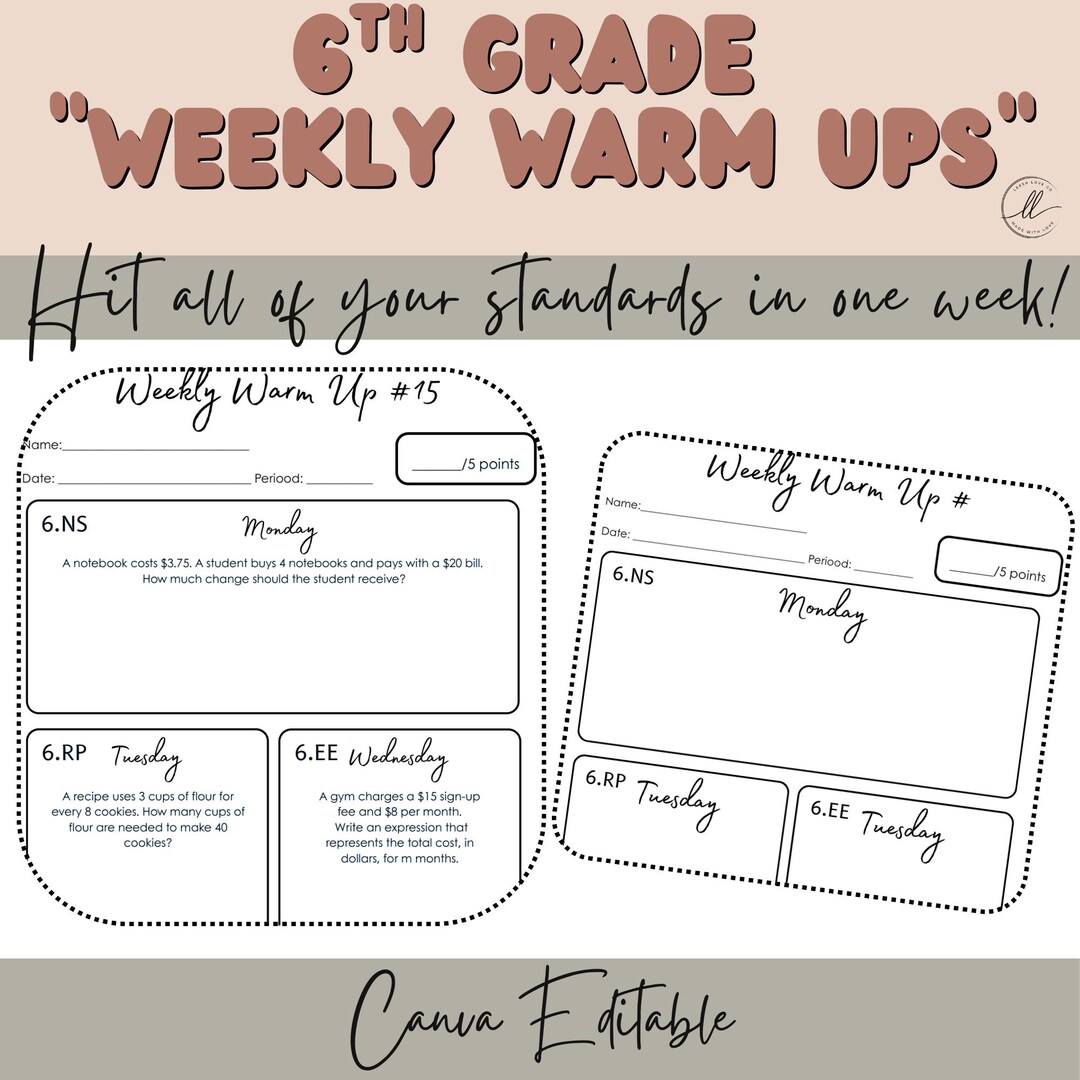 6TH GRADE
"WEEKLY WARM UPS"
LEESH LOVE CO
ll
MADE WITH LOVE
Hit all of your standards in one week!
Weekly Warm Up #15
Name:___________________________
Date: ____________________________ Periood: __________
_______/5 points
6.NS Monday
A notebook costs $3.75. A student buys 4 notebooks and pays with a $20 bill.
How much change should the student receive?
6.RP Tuesday
A recipe uses 3 cups of flour for
every 8 cookies. How many cups of
flour are needed to make 40
cookies?
6.EE Wednesday
A gym charges a $15 sign-up
fee and $8 per month.
Write an expression that
represents the total cost, in
dollars, for m months.
Weekly Warm Up #
Name:___________________________
Date: ____________________________ Periood: __________
_______/5 points
6.NS
Monday
6.RP Tuesday
6.EE Tuesday
Canva Editable